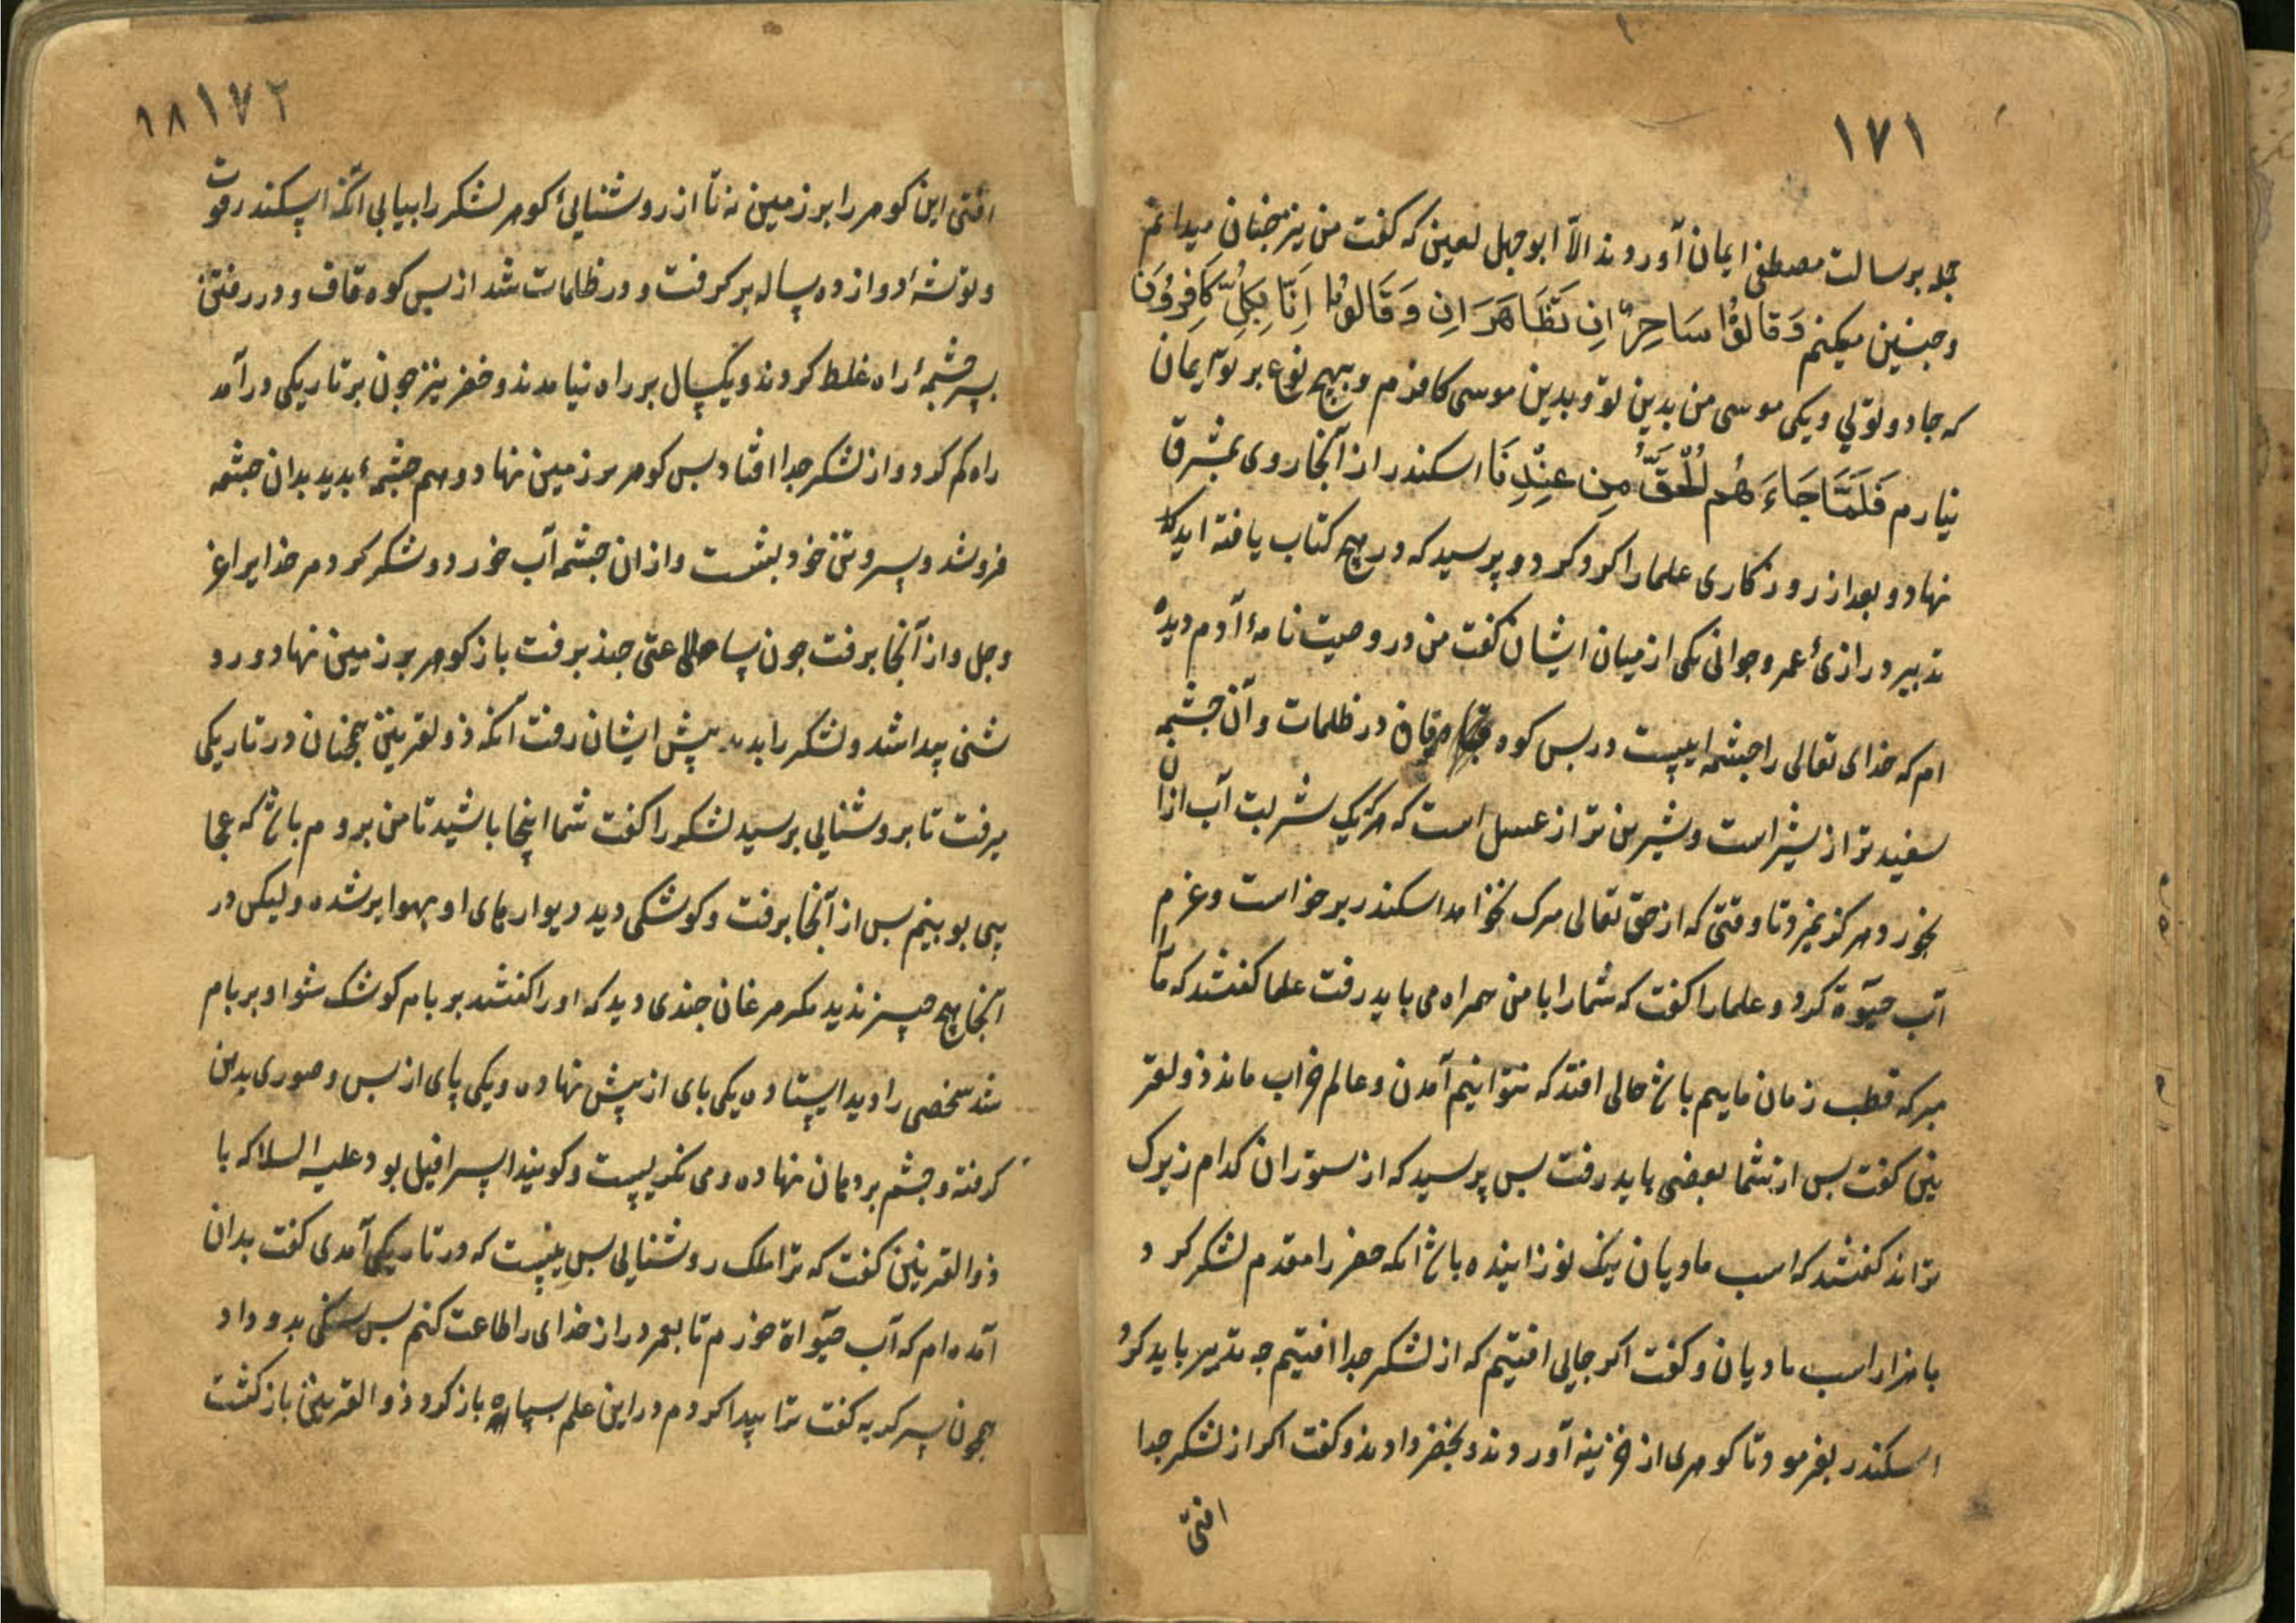 ۱۷۱
جمله برسالت مصطفی ایمان آوردند الّا ابوجهل لعین که گفت من نیز چنان میدانم
و چنین میکنم وَقَالُوا سَاحِرٌ اِنِ تَظَاهَرَانِ وَقَالُوا اِنَّا بِکُلٍّ کَافِرُونَ
که جادو توئی و یکی موسی من بدین تو و بدین موسی کافرم و بهیچ نوع بر تو ایمان
نیارم فَلَمَّا جَاءَهُمُ الْحَقُّ مِنْ عِنْدِنَا اسکندر از آنجا روی بمشرق
نهاد و بعد از روزکاری علما را کرد کرد و پرسید که در هیچ کتاب یافته اید که
تدبیر درازیٔ عمر و جوانی یکی از میان ایشان کفت من در وصیت نامهٔ آدم دیده
ام که خدای تعالی را چشمه ایست در پس کوه قاف در ظلمات و آن چشمه
سفید تر از شیر است و شیرین تر از عسل است که هرکه یک شربت آب ازان
بخورد هرکز نمیرد تا وقتی که از حق تعالی مرک نخواهد اسکندر برخواست و عزم
آب حیٰوة کرد و علما را کفت که شما را با من همراه می باید رفت علما کفتند که ما
هرکه قطب زمان ماییم باش حالی افتد که نتوانیم آمدن و عالم خراب ماند ذولقر
نین کفت بس از شما بعضی باید رفت بس پرسید که از ستوران کدام زیرک
تراند کفتند که اسب مادیان نیک نوزاینده باش انکه خضر را مقدم لشکر کرد
با هزار اسب مادیان و کفت اکر جایی افتیم که از لشکر جدا افتیم چه تدبیر باید کرد
اسکندر بفرمود تا کوهری از خزینه آوردند و بخضر دادند و کفت اکر از لشکر جدا
افتی
۱۷۲ ۱۸
افتی این کوهر را بر زمین نه تا از روشنایٔ کوهر لشکر را بیابی انکه اسکندر قوت
و توشهٔ دوازده ساله بر کرفت و در ظلمات شد از بس کوه قاف و در رفتن
بسر چشمهٔ راه غلط کردند و یکسال بر راه نیامدند و خضر نیز چون بر تاریکی در آمد
راه کم کرد و از لشکر جدا افتاد بس کوهر بر زمین نهاد و هم چشمهٔ بدید بدان چشمه
فرو شد و سر و تن خود بشست و ازان چشمه آب خورد و شکر کرد مر خدایرا عز
و جل و از آنجا برفت چون ساعتی چند برفت باز کوهر بر زمین نهاد و رو
شنی پیدا شد و لشکر را بدید پیش ایشان رفت آنکه ذولقرنین همچنان در تاریکی
میرفت تا بروشنایی برسید لشکر را کفت شما اینجا باشید تا من بروم باش که عجا
یبی بو بینم بس از آنجا برفت و کوشکی دید دیوارهای او بهوا بر شده ولیکن در
آنجا هیچ چیز ندید مکر مرغان چندی دید که او را کفتند بر بام کوشک شو او بر بام
شد شخصی را دید ایستاده یکی پای از پیش نهاده و یکی پای از بس و صوری بدهن
کرفته و چشم بر دهان نهاده و می نکریست و کویند اسرافیل بود علیه السلا که با
ذوالقرنین کفت که ترا ملک روشنایی بس نیست که در تاریکی آمدی کفت بدان
آمده ام که آب حیٰواة خورم تا بعمر دراز خدای را طاعت کنم بس سنکی بدو داد
همچون سر کربه کفت ترا پیدا کردم در این علم بسیار باز کرد ذوالقرنین باز کشت